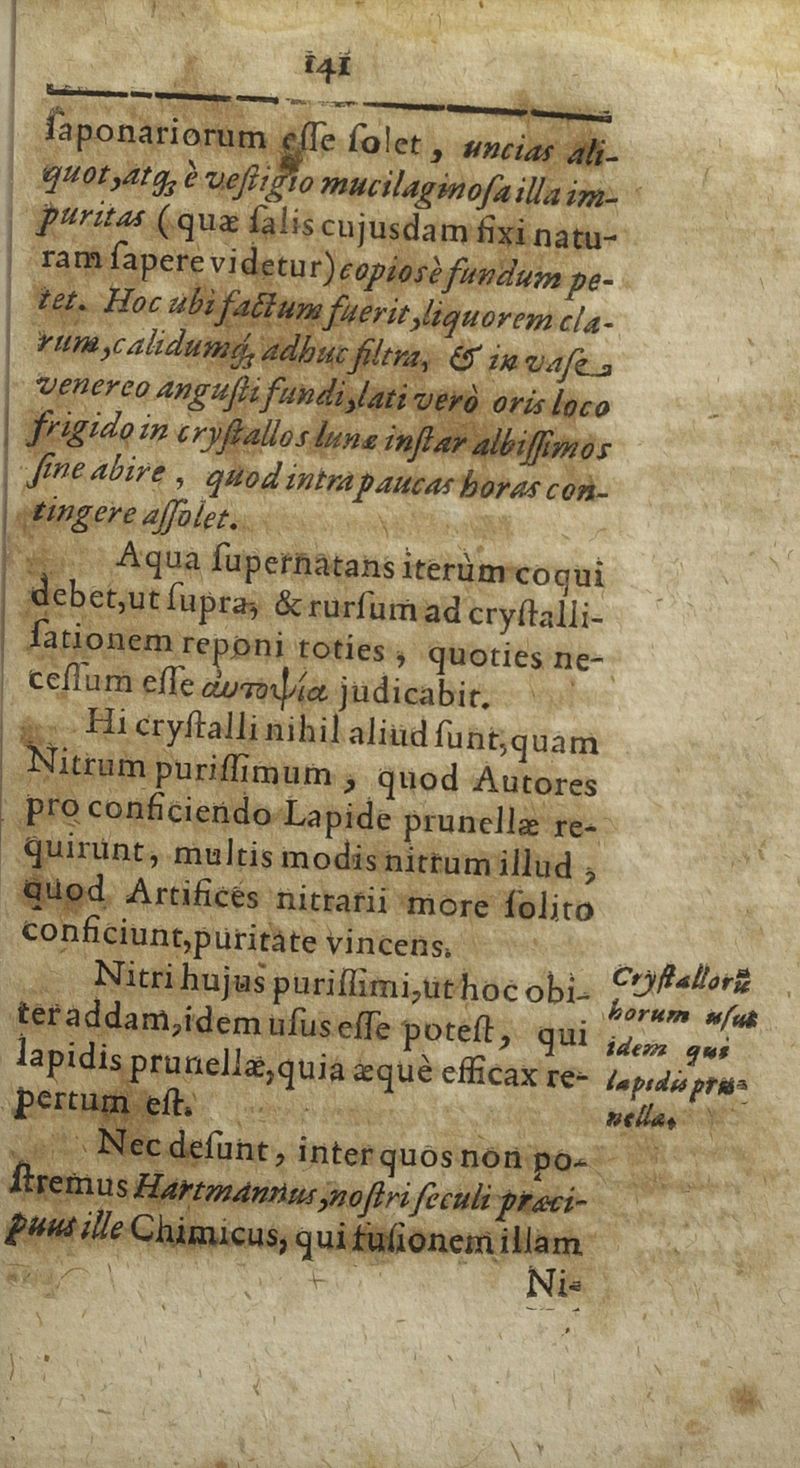 141
ſaponariorum eſſe ſolet, uncias ali-
quot, atq; è veſtigio mucilaginoſa illa im-
puritas (quæ ſalis cujusdam fixi natu-
ram ſapere videtur) copiosè fundum pe-
tet. Hoc ubi factum fuerit, liquorem cla-
rum, calidumq; adhuc filtra, & in vaſe
venereo anguſti fundi, lati verò oris loco
frigido in cryſtallos lunæ inſtar albiſſimos
ſine abire, quod intra paucas horas con-
tingere aſſolet.
Aqua ſupernatans iterùm coqui
debet, ut ſupra, & rurſum ad cryſtalli-
ſationem reponi toties, quoties ne-
ceſſum eſſe αὐτοψία judicabit.
Hi cryſtalli nihil aliud ſunt, quam
Nitrum puriſſimum, quod Autores
pro conficiendo Lapide prunellæ re-
quirunt, multis modis nitrum illud,
quod Artifices nitrarii more ſolito
conficiunt, puritate vincens.
Nitri hujus puriſſimi, ut hoc obi-
ter addam, idem uſus eſſe poteſt, qui
lapidis prunellæ, quia æquè efficax re-
pertum eſt.
Cryſtallorū
horum uſus
idem qui
lapidis pru-
nellæ.
Nec deſunt, inter quos non po-
ſtremus Hartmannus, noſtri ſeculi præci-
puus ille Chimicus, qui fuſionem illam
Ni-